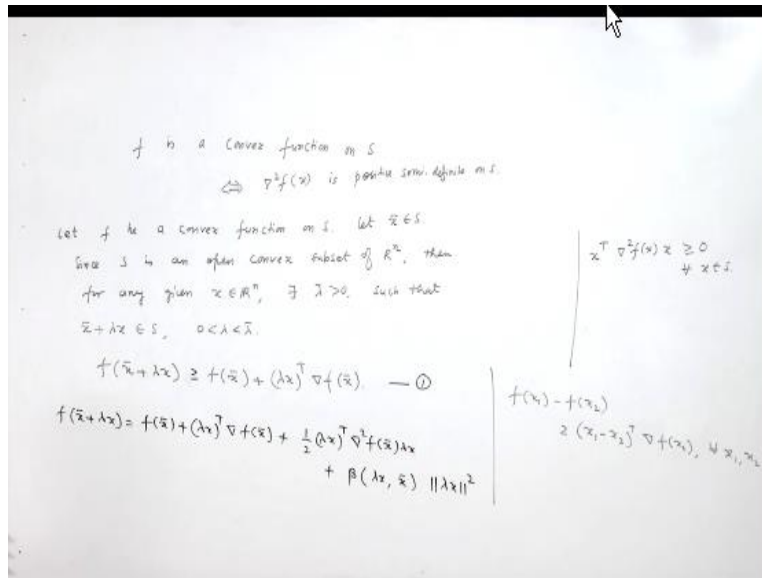 f is a convex function on S
⇔ ∇²f(x) is positive semi-definite on S.
Let f be a convex function on S. Let x̄ ∈ S
Since S is an open convex subset of Rⁿ, then
for any given x ∈ Rⁿ, ∃ λ̄ > 0, such that
x̄ + λx ∈ S, 0 < λ < λ̄.
f(x̄ + λx) ≥ f(x̄) + (λx)ᵀ ∇f(x̄). — ①
f(x̄ + λx) = f(x̄) + (λx)ᵀ ∇f(x̄) + ½ (λx)ᵀ ∇²f(x̄) λx
+ β(λx, x̄) ||λx||²
xᵀ ∇²f(x) x ≥ 0
∀ x ∈ S.
f(x₁) − f(x₂)
≥ (x₁ − x₂)ᵀ ∇f(x₂), ∀ x₁, x₂